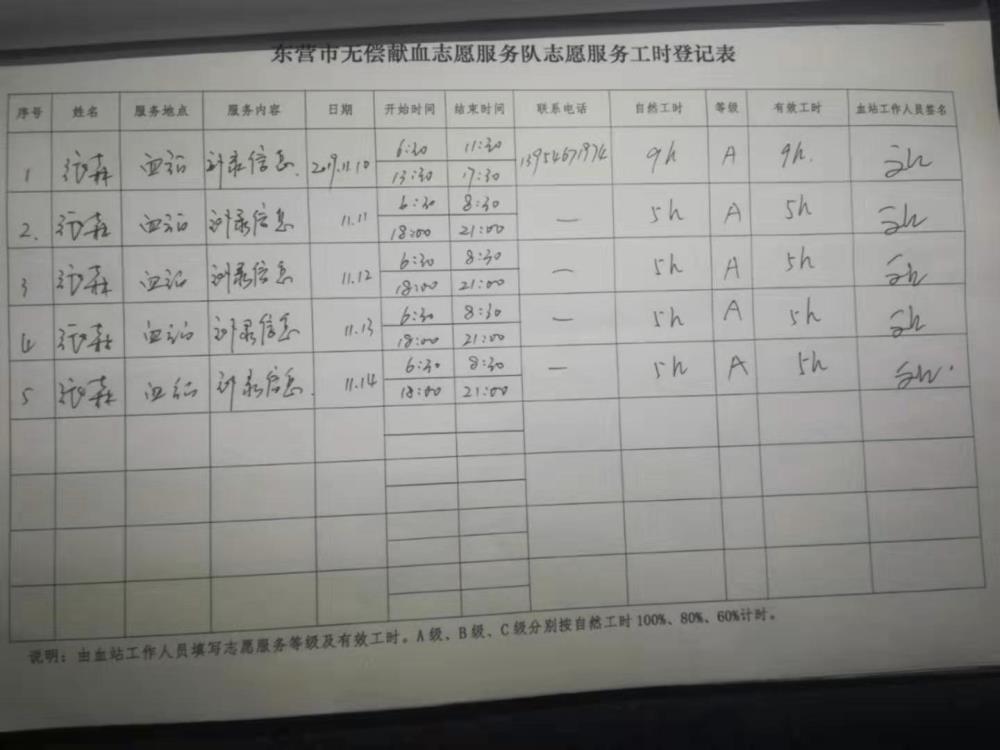 东营市无偿献血志愿服务队志愿服务工时登记表
序号 姓名 服务地点 服务内容 日期 开始时间 结束时间 联系电话 自然工时 等级 有效工时 血站工作人员签名
1 张森 血站 记录信息 2019.11.10 6:30 11:30 13954671974 9h A 9h.
13:30 17:30
2. 张森 血站 记录信息 11.11 6:30 8:30 — 5h A 5h
18:00 21:00
3 张森 血站 记录信息 11.12 6:30 8:30 — 5h A 5h
18:00 21:00
4 张森 血站 记录信息 11.13 6:30 8:30 — 5h A 5h
18:00 21:00
5 张森 血站 记录信息. 11.14 6:30 8:30 — 5h A 5h
18:00 21:00
说明：由血站工作人员填写志愿服务等级及有效工时。A级、B级、C级分别按自然工时100%、80%、60%计时。